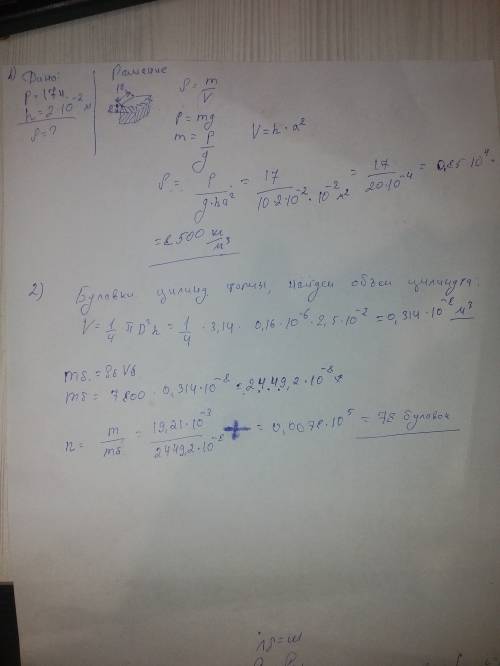 1) Дано:
P = 17н
h = 2·10⁻² м
ρ = ?
Решение
10
2
ρ = m/V
P = mg
m = P/g
V = h·a²
ρ = P/(g·ha²) = 17/(10·2·10⁻²·10⁻² м²) = 17/(20·10⁻⁴) = 0,85·10⁴ =
= 8500 кг/м³
2) Булавки цилинд формы, найдем объем цилиндра.
V = 1/4 πD²h = 1/4 · 3,14 · 0,16·10⁻⁶ · 2,5·10⁻² = 0,314·10⁻⁸ м³
mб. = ρб Vб
mб = 7800 · 0,314·10⁻⁸ = 2449,2·10⁻⁸
n = m/mб = 19,21·10⁻³/2449,2·10⁻⁸ = 0,0078·10⁵ = 78 булавок